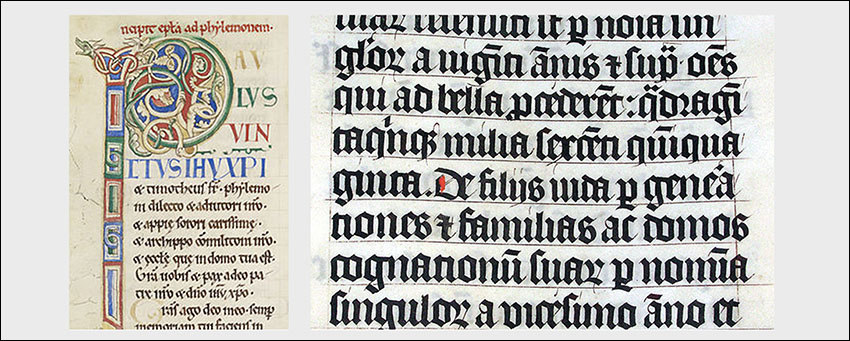 ncipit epła ad phylemonem.
P AV
LVS
VIN
CTVS IHV XPI
& timotheus fr̄. phylemo
ni dilecto & adiutori nr̄o.
& appie sorori carissime.
& archippo cōmilitoni nr̄o.
& eccłe que in domo tua est.
Gr̄a uobis & pax a deo pa
tre nr̄o & dn̄o ihū xp̄o.
Gr̄as ago deo meo. semp̄
memoriam tui faciens in
p noīa
gloꝝ a uiginti ānis ⁊ sup̄ om̄s
qui ad bella ꝓcederēt: q̄dragī
ta qīnqꝫ milia sexcēti quīqua
ginta. De filijs iuda ꝑ gene͛a
tiones ⁊ familias ac domos
cognationū suaꝝ ꝑ nomīa
singuloꝝ a vicesimo āno et